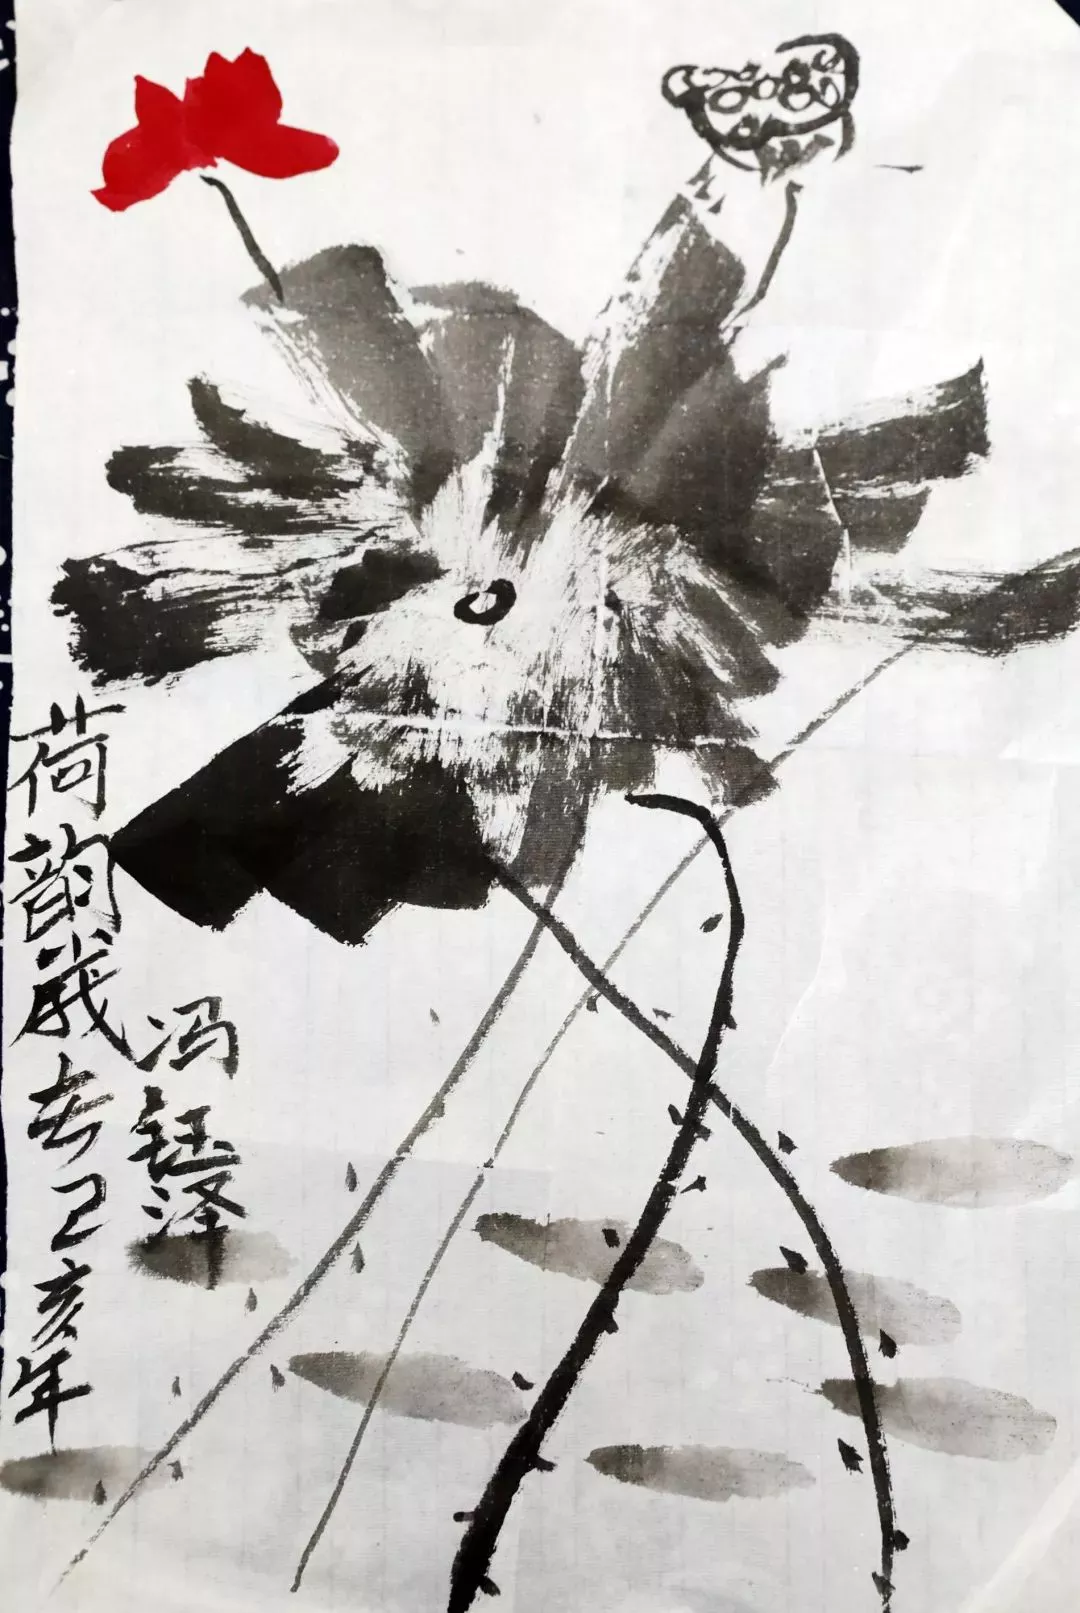 荷韵歲在己亥年
冯钰泽